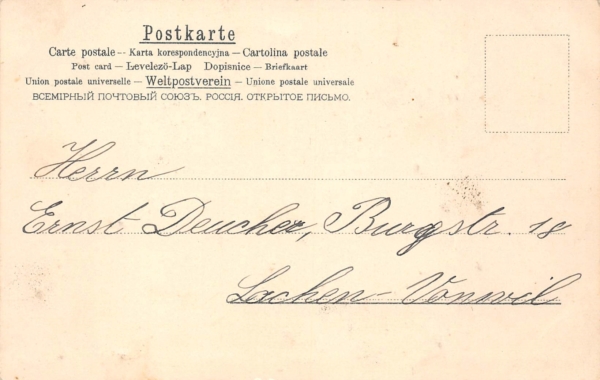 Postkarte
Carte postale -- Karta korespondencyjna -- Cartolina postale
Post card — Levelező-Lap Dopisnice — Briefkaart
Union postale universelle — Weltpostverein — Unione postale universale
ВСЕМІРНЫЙ ПОЧТОВЫЙ СОЮЗЪ. РОССІЯ. ОТКРЫТОЕ ПИСЬМО.
Herrn
Ernst Deucher, Burgstr. 18
Lachen-Vonwil